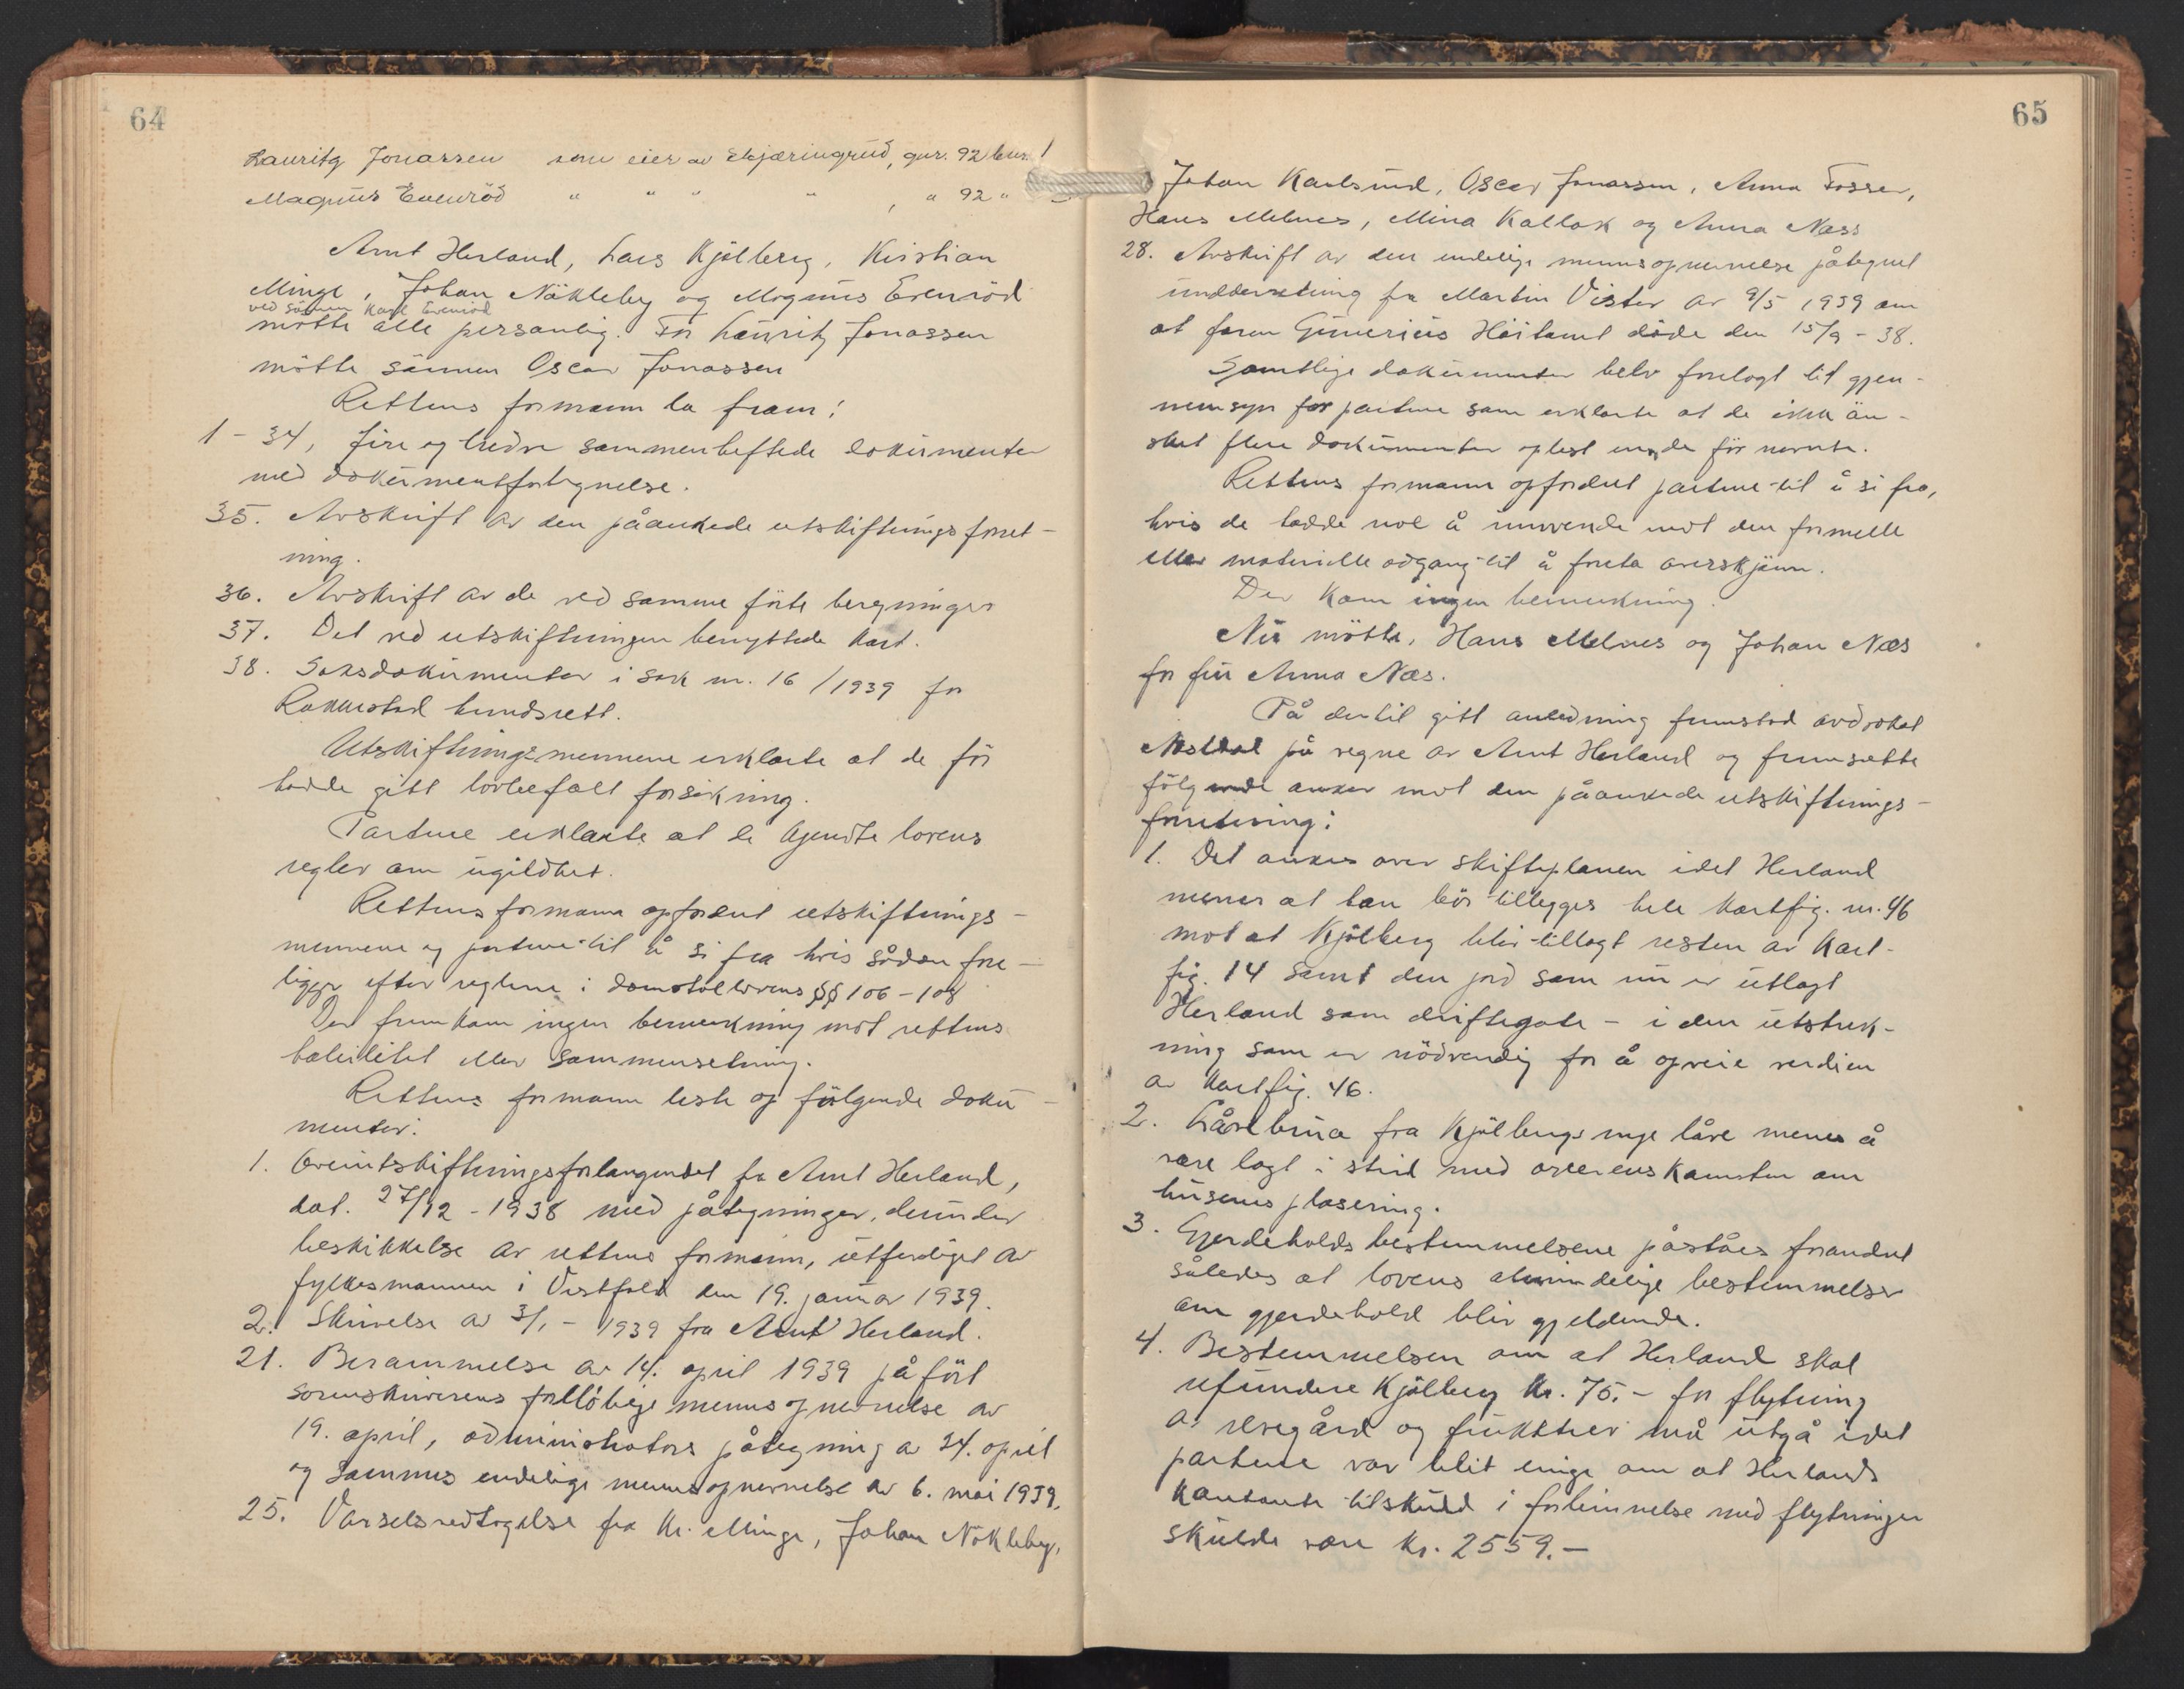 64
Lauritz Jonassen som eier av Skjæringrud, gnr. 92 bnr. 1
Magnus Evenröd " " " " , " 92 "
Arnt Herland, Lars Kjölberg, Kristian
Minge, Johan Nökleby og Magnus Evenröd
ved sönnen Karl Evenröd
mötte alle personlig. For Lauritz Jonassen
mötte sönnen Oscar Jonassen
Rettens formann la fram:
1 - 34, fire og tredve sammenheftede dokumenter
med dokumentfortegnelse.
35. Avskrift av den påankede utskiftningsforret-
ning.
36. Avskrift av de ved samme förte beregninger
37. Det ved utskiftningen benyttede kart.
38. Saksdokumenter i sak nr. 16 / 1939 for
Rakkestad herredsrett.
Utskiftningsmennene erklærte at de för
hadde gitt lovbefalt forsikring.
Partene erklærte at de kjendte lovens
regler om ugildhet.
Rettens formann opfordret utskiftnings-
mennene og partene til å si fra hvis sådan fore-
ligger efter reglene i domstollovens §§ 106 - 108
Der fremkom ingen bemerkning mot rettens
habilitet eller sammensetning.
Rettens formann leste op fölgende doku-
menter:
1. Overutskiftningsforlangendet fra Arnt Herland,
dat. 27/12 - 1938 med påtegninger, derunder
beskikkelse av rettens formann, utferdiget av
fylkesmannen i Vestfold den 19. januar 1939.
2. Skrivelse av 3/1 - 1939 fra Arnt Herland.
21. Berammelse av 14. april 1939 påfört
sorenskriverens forelöbige mennsopnevnelse av
19. april, administrators påtegning av 24. april
og sammes endelige mennsopnevnelse av 6. mai 1939.
25. Varselsvedtagelse fra Kr. Minge, Johan Nökleby,
65
Johan Karlsrud, Oscar Jonassen, Anna Fosser,
Hans Melnes, Mina Kallak og Anna Næss
28. Avskrift av den endelige mennsopnevnelse påtegnet
underretning fra Martin Vister av 9/5 1939 om
at faren Gunerius Höitomt döde den 15/9 - 38.
Samtlige dokumenter blev forelagt til gjen-
nemsyn for partene som erklærte at de ikke ön-
sket flere dokumenter oplest enn de för nevnte.
Rettens formann opfordret partene til å si fra,
hvis de hadde noe å innvende mot den formelle
eller materielle adgang til å foreta overskjönn.
Der kom ingen bemerkning.
Nu mötte, Hans Melnes og Johan Næs
for fru Anna Næs.
På dertil gitt anledning fremstod advokat
på vegne av Arnt Herland og fremsatte
fölgende anker mot den påankede utskiftnings-
forretning:
1. Det ankes over skifteplanen idet Herland
mener at han bör tillegges hele kartfig. nr. 46
mot at Kjölberg blir tillagt resten av kart-
fig. 14 samt den jord som nu er utlagt
Herland som driftegate - i den utstrek-
ning som er nödvendig for å opveie verdien
av kartfig. 46.
2. Låvebrua fra Kjölbergs nye låve menes å
være lagt i strid med overenskomsten om
husenes plasering.
3. Gjerdeholdsbestemmelsene påståes forandret
således at lovens almindelige bestemmelser
om gjerdehold blir gjeldende.
4. Bestemmelsen om at Herland skal
refundere Kjölberg kr. 75.- for flytning
av vregård og frukttrær må utgå idet
partene var blit enige om at Herlands
kontante tilskudd i forbinnelse med flytninger
skulde være kr. 2559.-